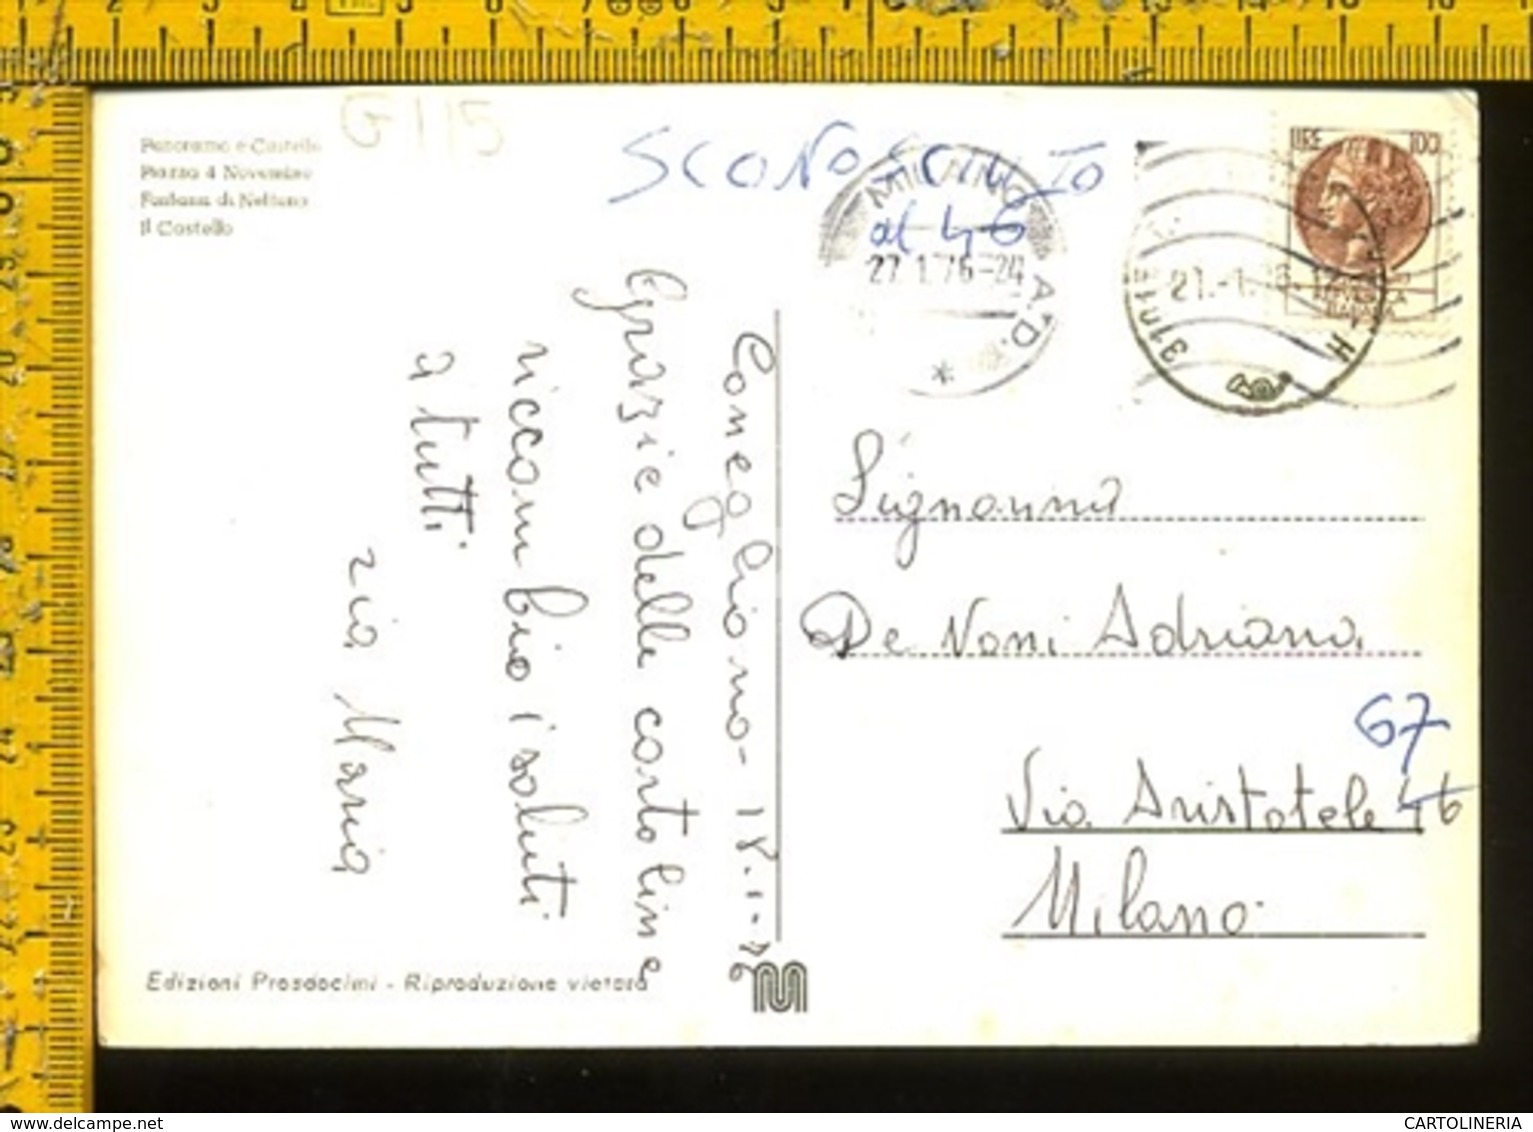 G 115
Panorama e Castello
Piazza 4 Novembre
Fontana di Nettuno
Il Castello
SCONOSCIUTO
al 46
MILANO A.D.
27.1.76-24
21.-1.76.
31015
LIRE 100
ITALIANA
Conegliano - 18.1.76
Grazie delle cartoline
riccambio i saluti
a tutti
zia Maria
Signorina
De Noni Adriana
67
Via Aristotele 46
Milano
Edizioni Prosdocimi - Riproduzione vietata
delcampe.net
CARTOLINERIA